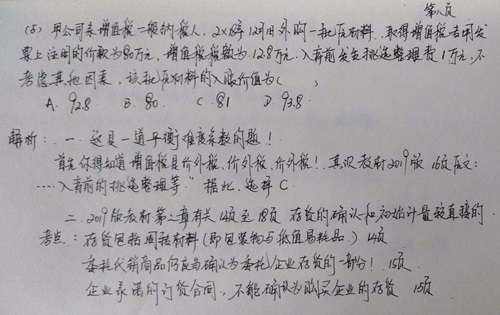 第八页
(5) 甲公司系增值税一般纳税人，2×18年12月1日外购一批原材料，取得增值税专用发
票上注明的价款为80万元，增值税税额为12.8万元，入库前发生挑选整理费1万元，不
考虑其他因素，该批原材料的入账价值为（ ）
A. 92.8 B. 80 C. 81 D. 93.8
解析：一. 这是一道平衡难度系数的题！
首先你得知道增值税是价外税、价外税、价外税！其次教材2019版 16页原文：
……入库前的挑选整理等" 据此，选择C
二. 2019版教材第二章有关14页至18页 存货的确认和初始计量较直接的
考点：存货包括周转材料（即包装物与低值易耗品） 14页
委托代销商品仍应当确认为委托企业存货的一部分！ 15页
企业承诺的订货合同，不能确认为购买企业的存货 15页